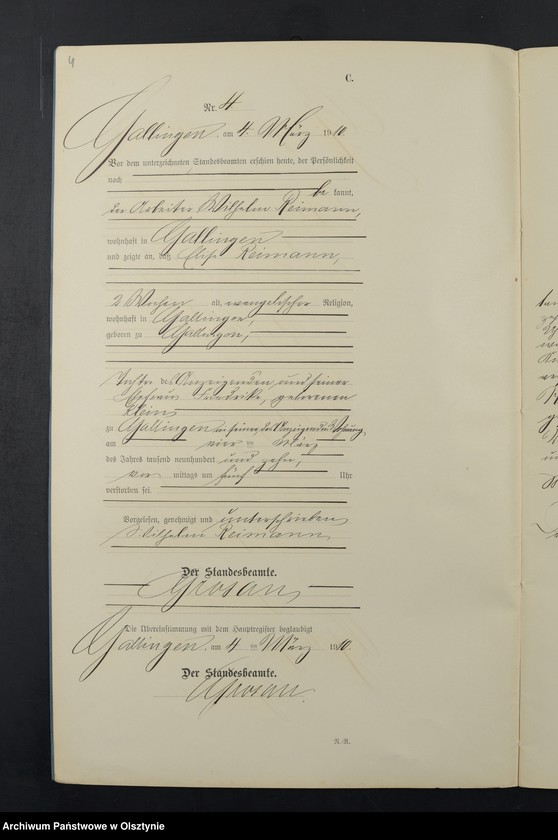 4
C.
Nr. 4
Gallingen, am 4. März 1910
Vor dem unterzeichneten Standesbeamten erschien heute, der Persönlichkeit
nach
be kannt,
der Arbeiter Wilhelm Reimann,
wohnhaft in Gallingen
und zeigte an, daß Elise Reimann,
2 Wochen alt, evangelischer Religion,
wohnhaft in Gallingen,
geboren zu Gallingen,
Tochter des Anzeigenden und seiner
Ehefrau Friedrike, geborenen
Klein
zu Gallingen in seiner, des Anzeigenden Wohnung
am vier ten März
des Jahres tausend neunhundert und zehn,
vor mittags um fünf Uhr
verstorben sei.
Vorgelesen, genehmigt und unterschrieben
Wilhelm Reimann
Der Standesbeamte.
Die Übereinstimmung mit dem Hauptregister beglaubigt
Gallingen, am 4 ten März 1910.
Der Standesbeamte.
N.-R.
Archiwum Państwowe w Olsztynie